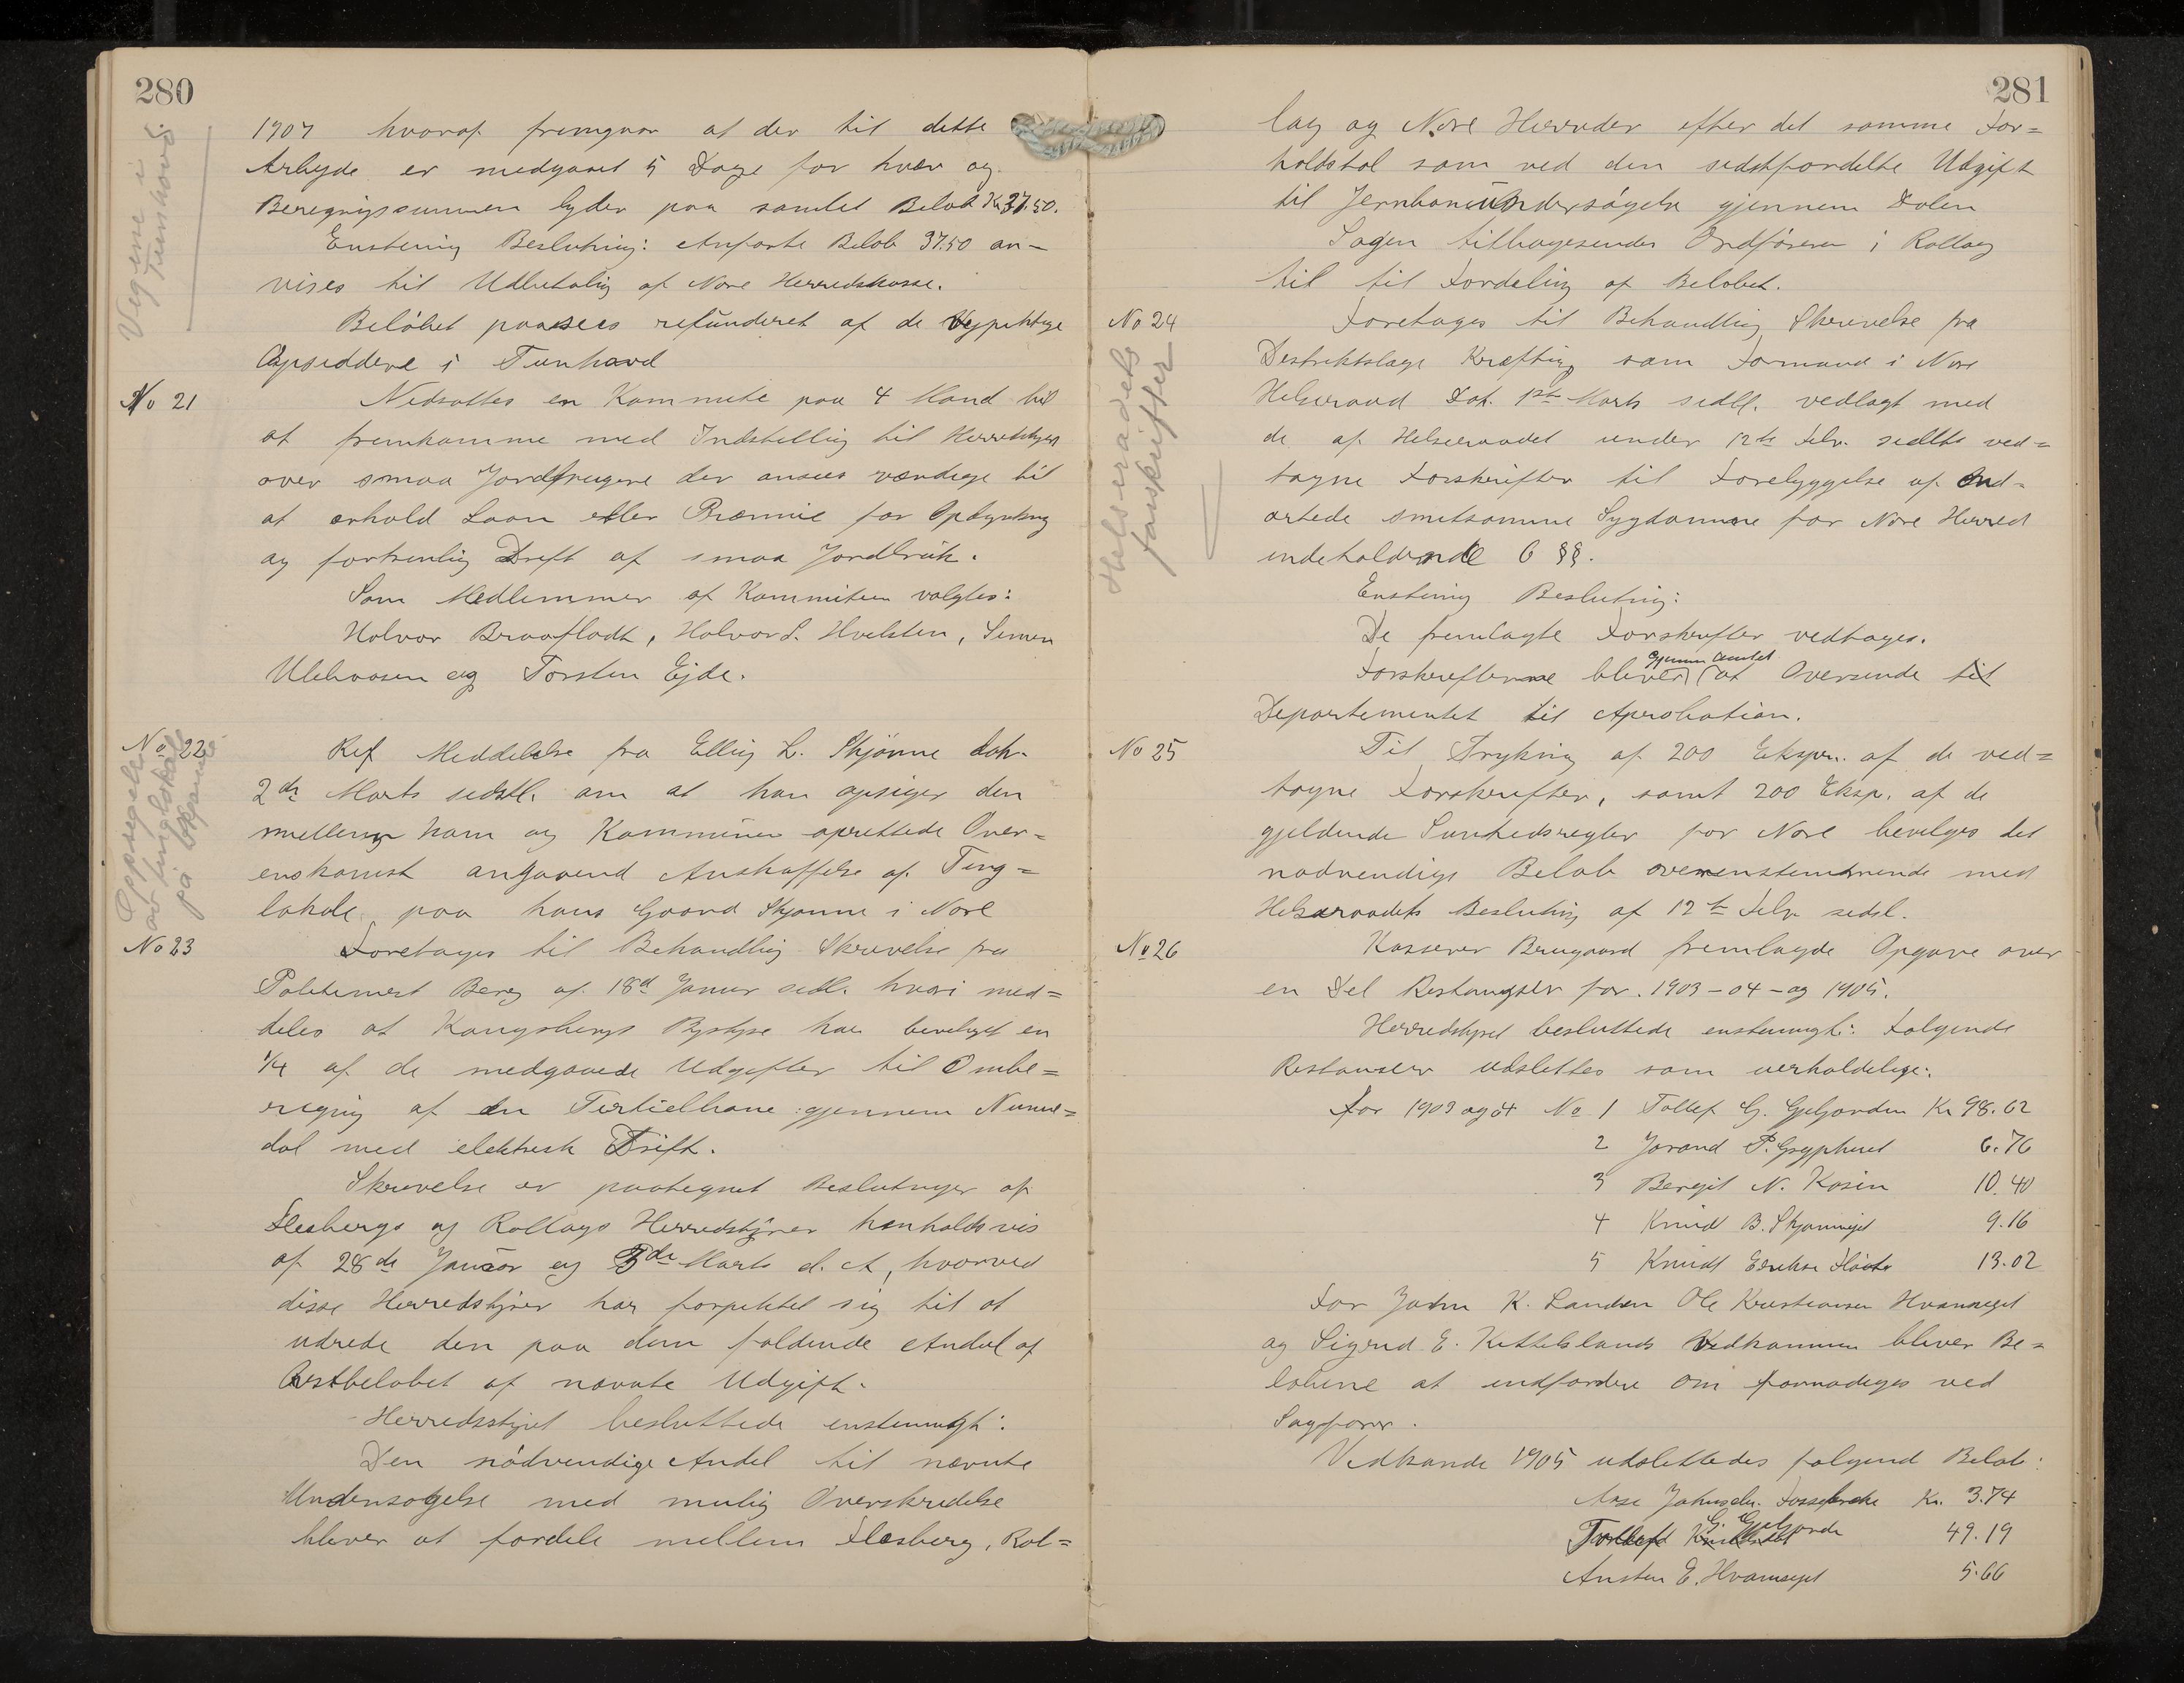 280
1907 hvoraf fremgaar at der til dette
Arbeyde er medgaaet 5 Dage for hver og
Beregnigssummen lyder paa samlet Beløb Kr 37.50.
Enstemig Beslutnig: Anførte Beløb 37.50 an-
vises til Udbetalig af Nore Herredskasse.
Beløbet paasees refunderet af de Vejpligtige
Opsiddere i Tunhovd
Vegene i Tunhovd
No 21
Nedsattes en Kommite paa 4 Mand til
at fremkomme med Indstillig til Herredstyret
over smaa Jordbrugere der ansees værdige til
at erhold Laan eller Præmie for Opdyrkng
og fortrinlig Drift af smaa Jordbruk.
Som Medlemmer af Kommiteen valgtes:
Halvor Braafladt, Halvor S. Hvelsten, Simen
Ulehvasen og Torsten Ejde.
No 22
Oppsigelse av tinglokale på Skjønne
Ref Meddelelse fra Ellig L. Skjønne dat.
2de Marts sidstl. om at han opsiger den
mellem ham og Kommunen oprettede Over=
enskomst angaaend Anskaffelse af Ting=
lokale paa hans Gaard Skjønne i Nore
No 23
Foretages til Behandlig Skrivelse fra
Politimest Berg af 18d Januar sidtl. hvori med=
deles at Kongsbergs Bystyre har bevilget en
1/4 af de medgaaede Udgifter til Ombe=
regnig af en Tertielbane gjennem Nume=
dal med elektrisk Drift.
Skrivelse er paategnet Beslutniger af
Flesbergs og Rollags Herredstyrer henholdsvis
af 28de Januar og 3de Marts d. A, hvorved
disse Herredstyrer har forpliktet sig til at
udrede den paa dem faldende Andel af
Restbeløbet af nævnte Udgift.
Herredsstyret besluttede enstemmigt:
Den nødvendige Andel til nævnte
Undersøgelse med mulig Overskridelse
bliver at fordele mellem Flesberg, Rol=
281
lag og Nore Herreder efter det samme For=
holdstal som ved den sidstfordelte Udgift
til Jernbaneundersøgelse gjennem Dalen
Sagen tilbagesendes Ordføreren i Rollag
til til Fordeling af Beløbet.
No 24
Helserådets forskrifter
Foretages til Behandlig Skrivelse fra
Destriktslæge Krefting som Formand i Nore
Helseraad Dat. 1ste Marts sidtl. vedlagt med
de af Helseraadet under 12te Febr. sidtle ved=
tagne Forskrifter til Forebyggelse af Ond=
artede smitsomme Sygdomme for Nore Herred
indeholdende 6 §§.
Enstemig Beslutnig:
De fremlagte Forskrifter vedtages.
Forskrifterne bliver gjennem Amtet at Oversende til
Departementet til Aprobation.
No 25
Til Tryking af 200 Ekspr. af de ved=
tagne Forskrifter, samt 200 Eksp. af de
gjeldende Sunhedsregler for Nore bevilges det
nødvendige Beløb overenstemmende med
Helseraadets Beslutnig af 12te Febr sidstl.
No 26
Kasserer Bruugaard fremlagde Opgave over
en Del Restangser for. 1903-04-og 1905.
Herredstyret besluttede enstemmigt: Følgende
Restanser udslettes som uerholdelige:
for 1903 og 04 No 1 Tollef G. Gjeljorden Kr 98.62
2 Jørand P. 6.76
3 Bergit N. Kosin 10.40
4 Knud B. 9.16
5 Knudt Eriksen 13.02
For K. Landen Ole Kristiansen Hvamseget
og Sigrid E. Kittelslands Vedkommen bliver Be=
løbene at indfordre om fornødiges ved
Sagfører.
Vedkande 1905 udslettedes følgend Beløb:
Aase Johnsdr. Fossebrekke Kr. 3.74
G. Gjeljorde 49.19
Austen E. Hvamseget 5.66